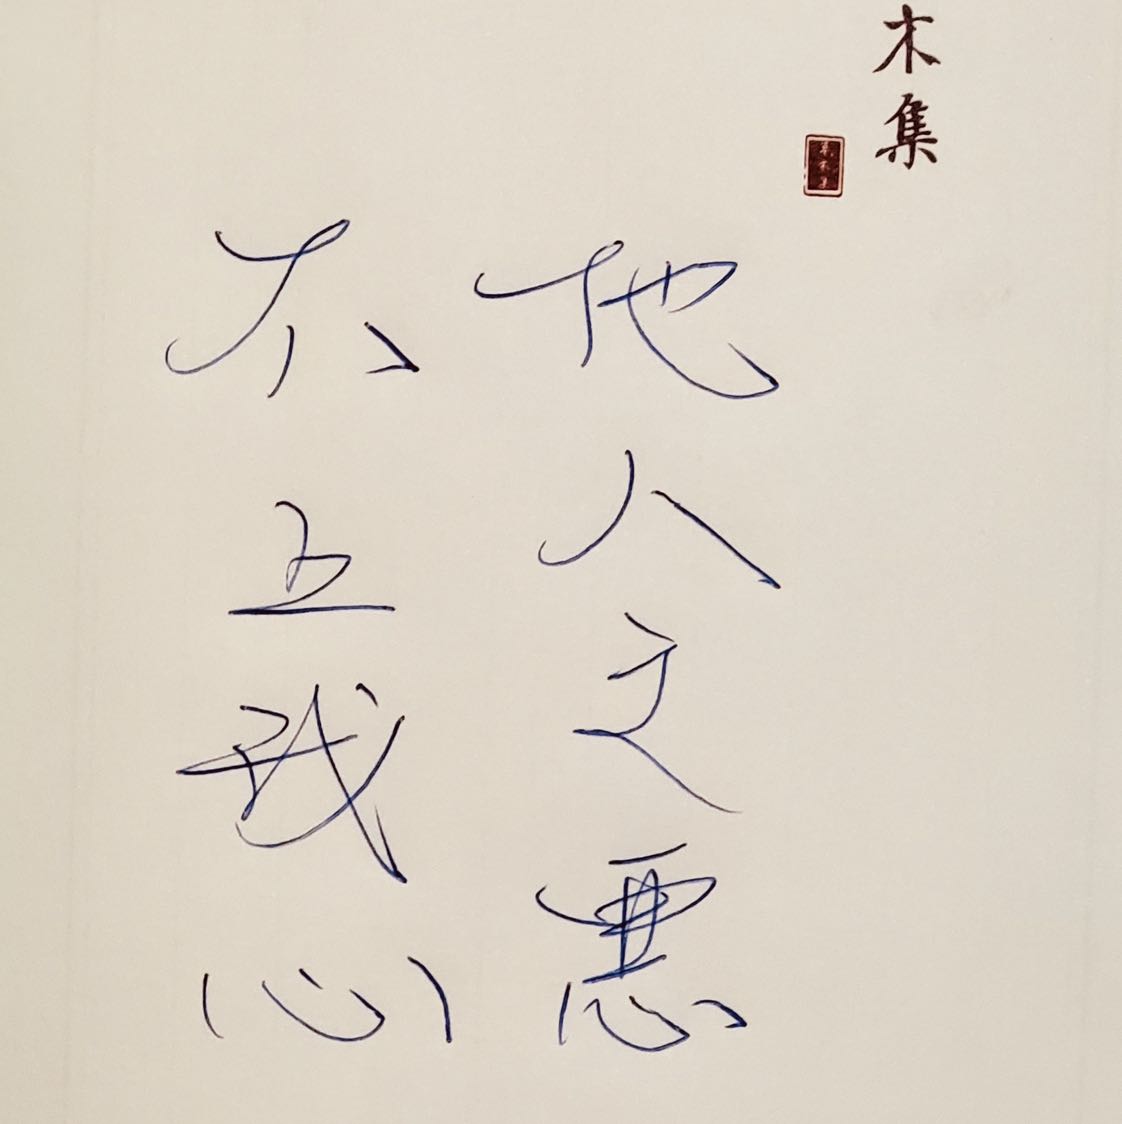 木集
他人之恶
不上我心